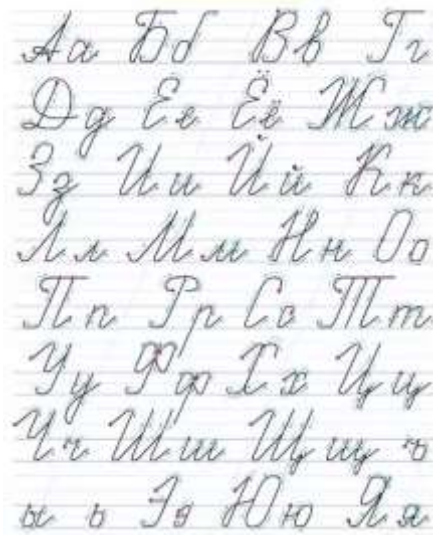 Аа Бб Вв Гг
Дд Ее Ёё Жж
Зз Ии Йй Кк
Лл Мм Нн Оо
Пп Рр Сс Тт
Уу Фф Хх Цц
Чч Шш Щщ ъ
ы ь Ээ Юю Яя